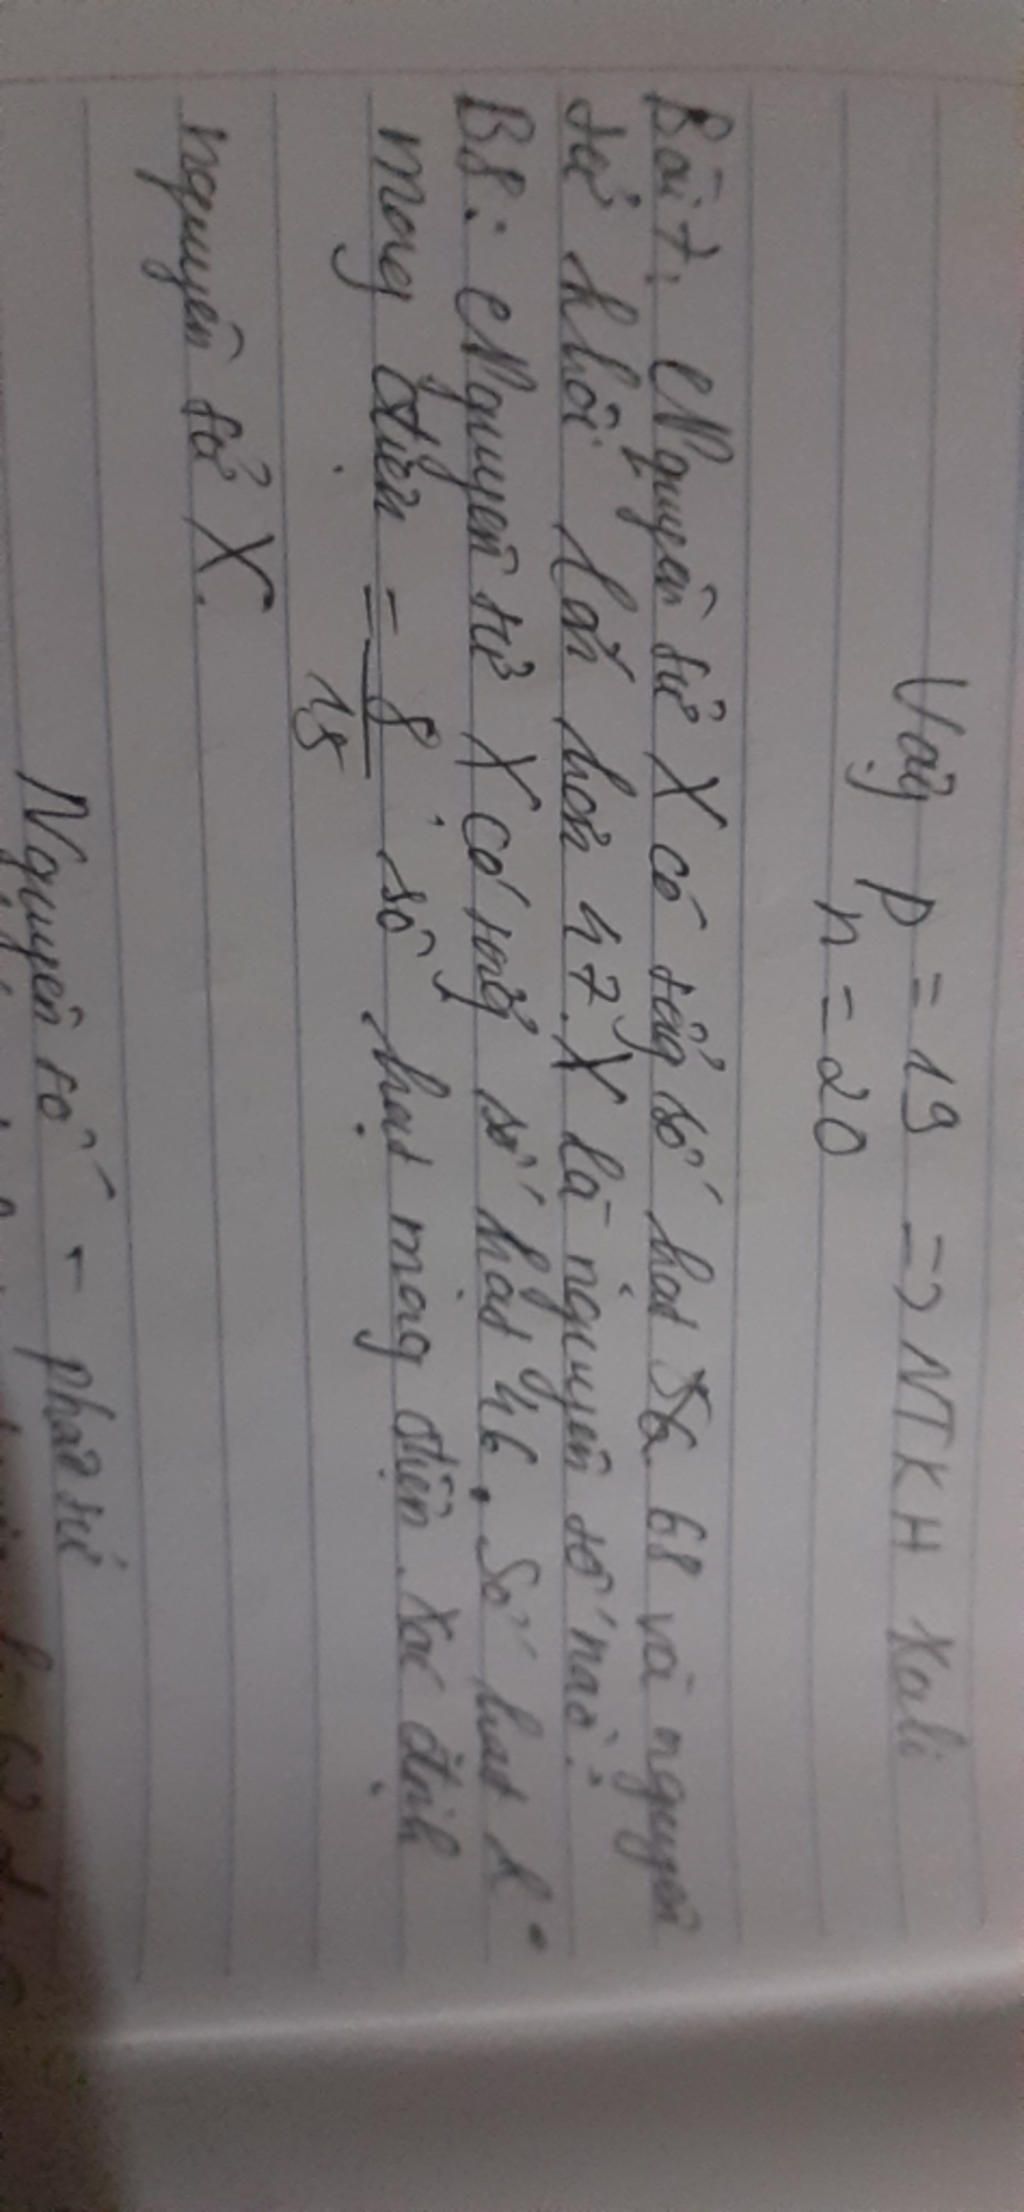 Vậy p = 19 => NTKH Kali
n = 20
Bài 7: Nguyên tử X có tổng số hạt 56 68 và nguyên
tử khối lớn hơn 47. X là nguyên tố nào?
B8: Nguyên tử X có tổng số hạt 46. Số hạt k°
mang điện = 8/15 số hạt mang điện. Xác định
nguyên tử X.
Nguyên tố - phân tử